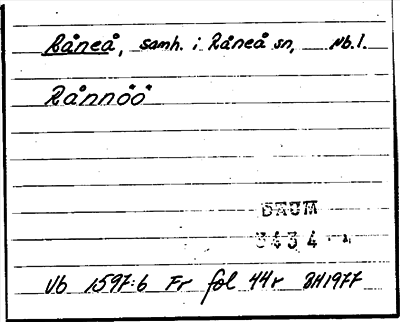 Råneå, samh. i Råneå sn, Nb.l.
Rånnöö
DAUM
3434
Vb 1597:6 Fr fol 44r BH1977